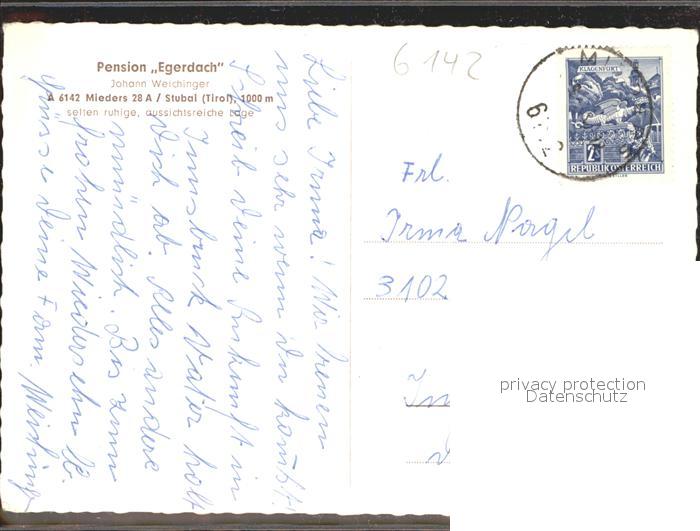 Pension „Egerdach"
Johann Weichinger
A 6142 Mieders 28 A / Stubai (Tirol), 1000 m
selten ruhige, aussichtsreiche Lage
Liebe Irma! Wir freuen
uns sehr wenn du kommst!
Schreib deine Ankunft in
Innsbruck Vater holt
Dich ab. Alles andere
mündlich. Bis zum
frohen Wiedersehn
Grüsse deine Fam.
6142
KLAGENFURT
2
REPUBLIK ÖSTERREICH
Frl.
Irma Nagel
3102
privacy protection
Datenschutz